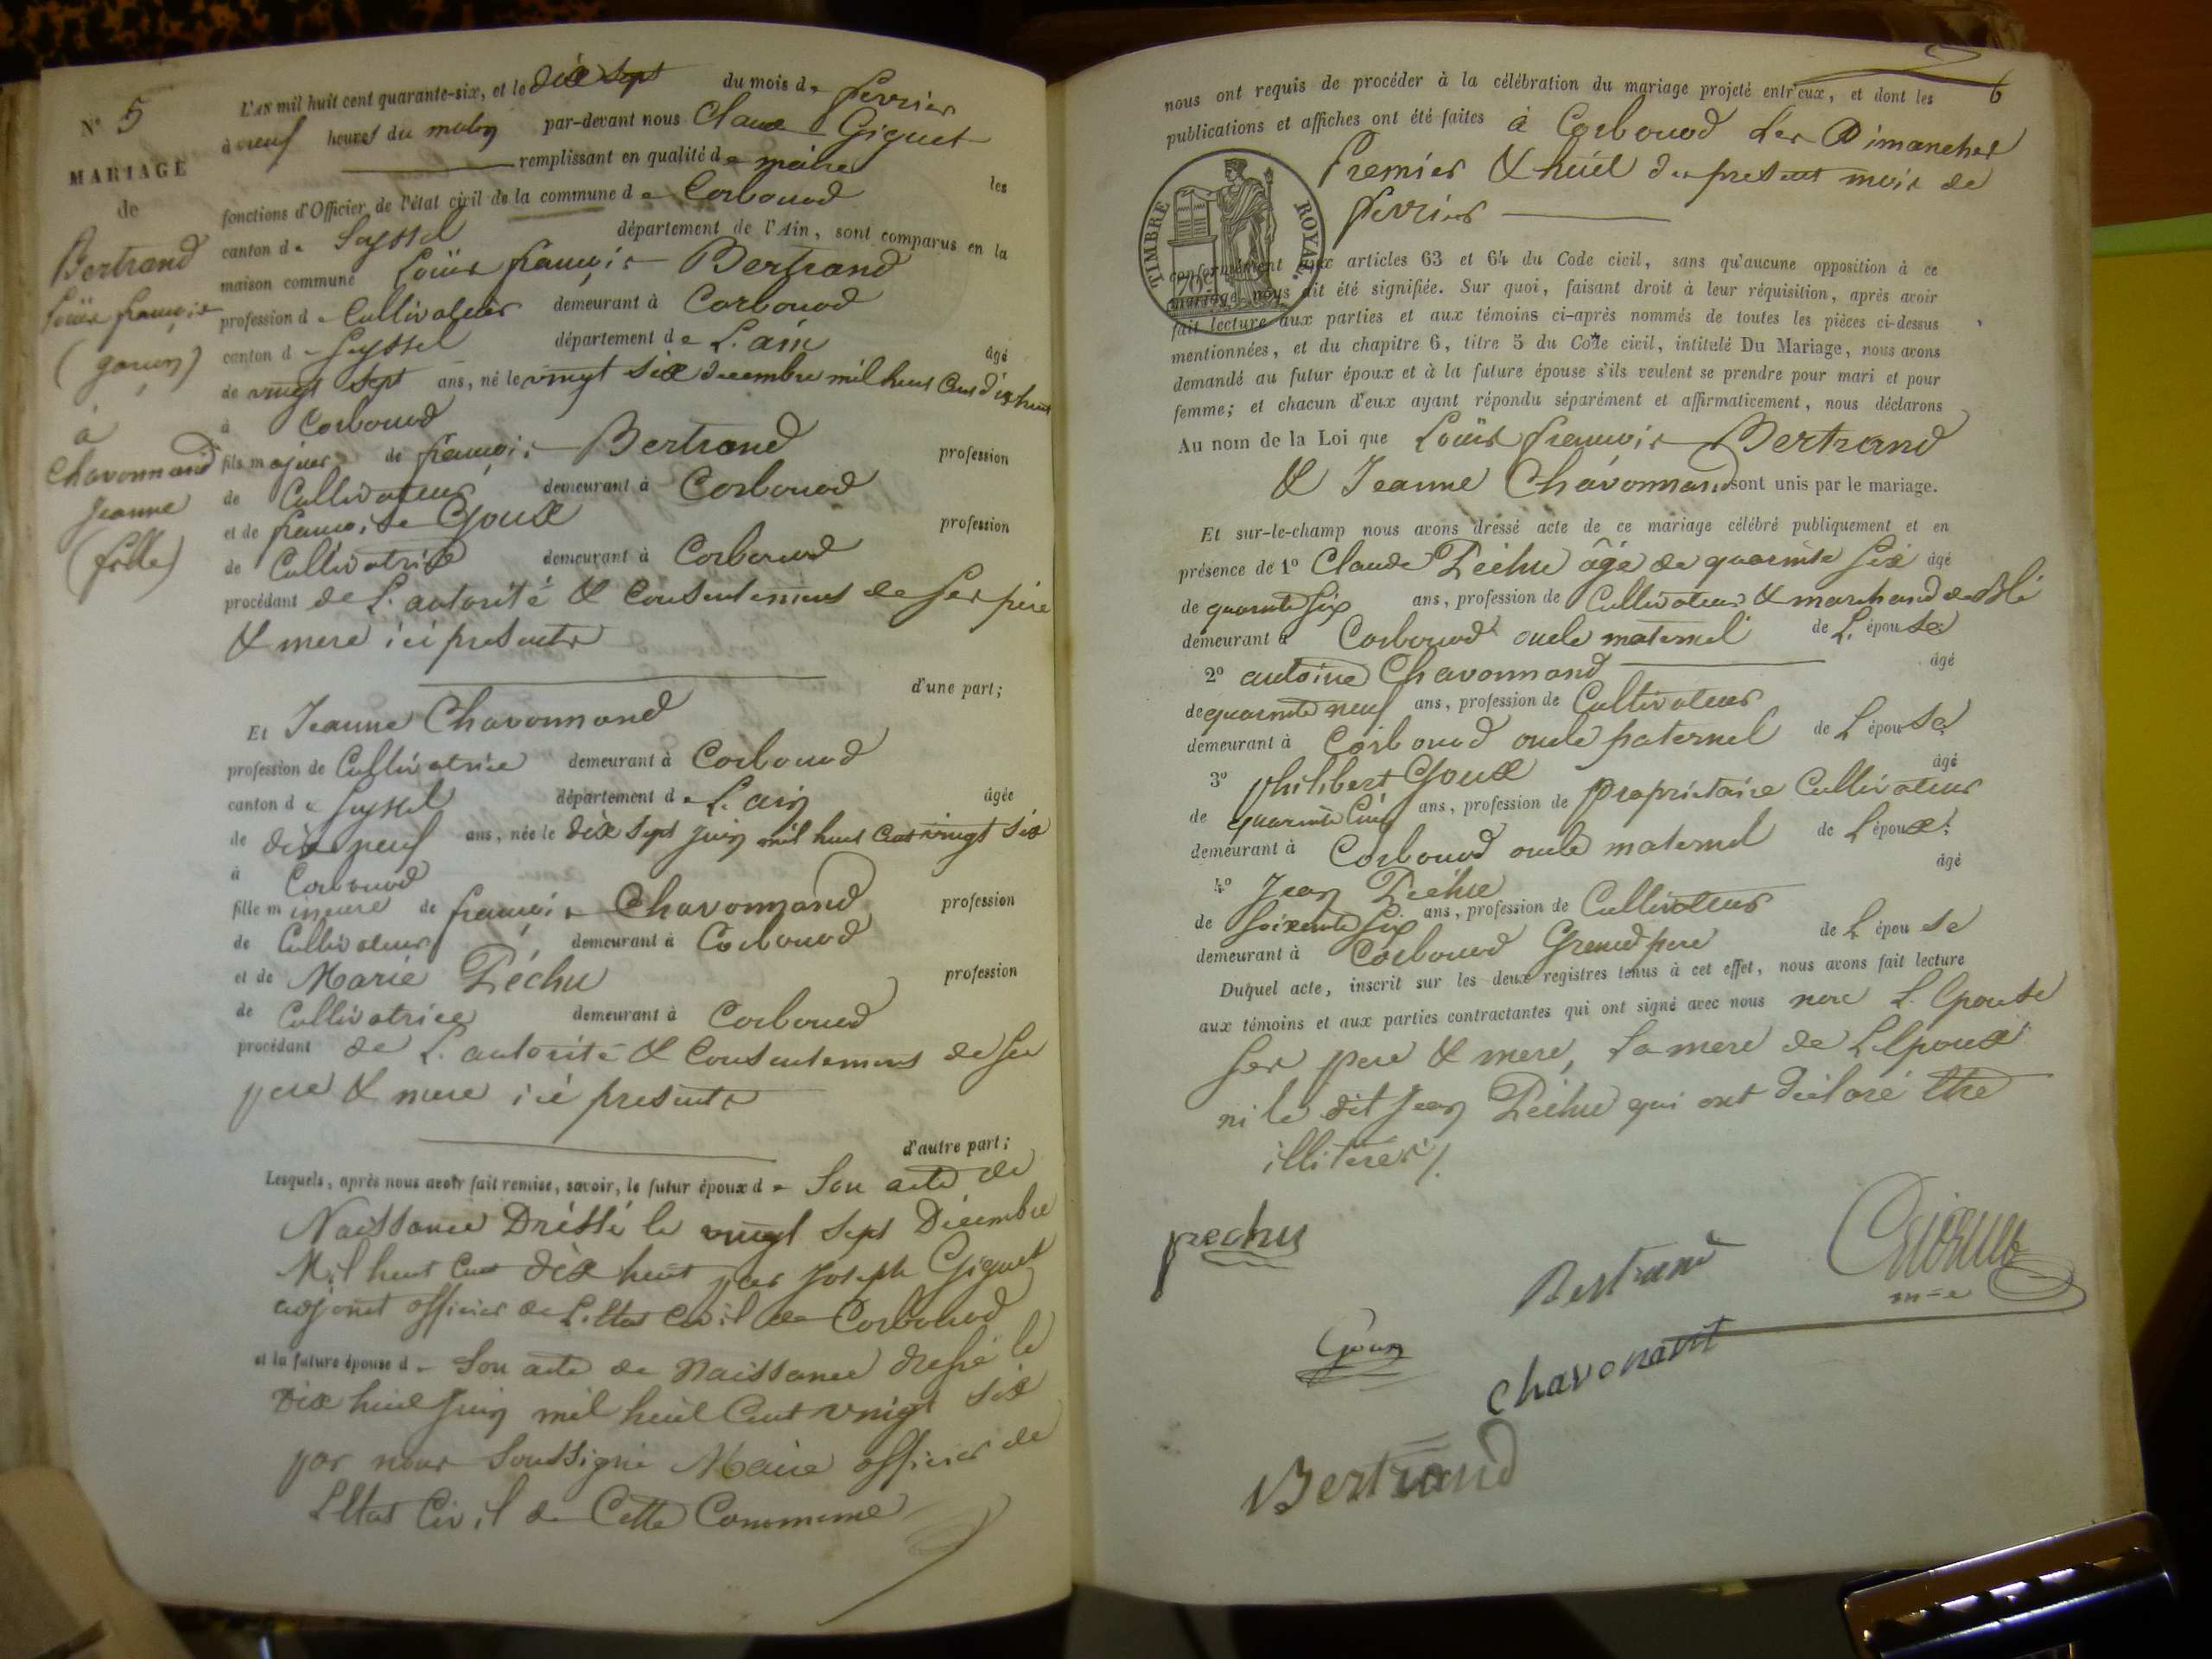 N° 5
MARIAGE
de
Bertrand
Louis françois
(garçon)
à
Chavonnand
Jeanne
(fille)
L'AN mil huit cent quarante-six, et le dix sept du mois de fevrier
à neuf heures du matin par-devant nous Claude Giguet
remplissant en qualité de maire les
fonctions d'Officier de l'état civil de la commune de Corbonod
canton de Seyssel département de l'Ain, sont comparus en la
maison commune Louis françois Bertrand
profession de Cultivateur demeurant à Corbonod
canton de Seyssel département de L'ain âgé
de vingt sept ans, né le vingt six decembre mil huit Cent dix huit
à Corbonod
fils majeur de françois Bertrand profession
de Cultivateur demeurant à Corbonod
et de françoise Goux profession
de Cultivatrice demeurant à Corbonod
procédant de L'autorité & Consentement de Ses père
& mere ici presents
d'une part;
Et Jeanne Chavonnand
profession de Cultivatrice demeurant à Corbonod
canton de Seyssel département de L'ain âgée
de dix neuf ans, née le dix sept juin mil huit Cent vingt six
à Corbonod
fille mineure de françois Chavonnand profession
de Cultivateur demeurant à Corbonod
et de Marie Péchu profession
de Cultivatrice demeurant à Corbonod
procédant de L'autorité & Consentement de Ses
pere & mere ici presents
d'autre part;
Lesquels, après nous avoir fait remise, savoir, le futur époux de Son acte de
Naissance Dréssé le vingt sept Décembre
Mil huit Cent dix huit par Joseph Giguet
adjoint officier de L'Etat Civil de Corbonod
et la future épouse de Son acte de Naissance dressé le
Dix huit Juin mil huit Cent vingt six
par nous Soussigné Maire officier de
L'Etat Civil de Cette Commune
6
nous ont requis de procéder à la célébration du mariage projeté entr'eux, et dont les
publications et affiches ont été faites à Corbonod les Dimanches
Premier & huit du present mois de
fevrier
TIMBRE ROYAL.
conformément aux articles 63 et 64 du Code civil, sans qu'aucune opposition à ce
mariage nous ait été signifiée. Sur quoi, faisant droit à leur réquisition, après avoir
fait lecture aux parties et aux témoins ci-après nommés de toutes les pièces ci-dessus
mentionnées, et du chapitre 6, titre 5 du Code civil, intitulé Du Mariage, nous avons
demandé au futur époux et à la future épouse s'ils veulent se prendre pour mari et pour
femme; et chacun d'eux ayant répondu séparément et affirmativement, nous déclarons
Au nom de la Loi que Louis françois Bertrand
& Jeanne Chavonnand sont unis par le mariage.
Et sur-le-champ nous avons dressé acte de ce mariage célébré publiquement et en
présence de 1° Claude Péchu âgé de quarante Six âgé
de quarante Six ans, profession de Cultivateur & marchand de Blé
demeurant à Corbonod oncle maternel de L'épouse
2° antoine Chavonnand âgé
de quarante neuf ans, profession de Cultivateur
demeurant à Corbonod oncle paternel de L'épouse
3° philibert Goux âgé
de quarante Cinq ans, profession de propriétaire Cultivateur
demeurant à Corbonod oncle maternel de L'époux;
4° Jean Péchu âgé
de Soixante Six ans, profession de Cultivateur
demeurant à Corbonod Grand pere de L'épouse
Duquel acte, inscrit sur les deux registres tenus à cet effet, nous avons fait lecture
aux témoins et aux parties contractantes qui ont signé avec nous non L'Epouse
Ses pere & mere, La mere de L'Epoux
ni le dit Jean Péchu qui ont déclaré être
illitérés /.
pechu
Bertrand
Giguet
m=e
Goux
chavonant
Bertrand